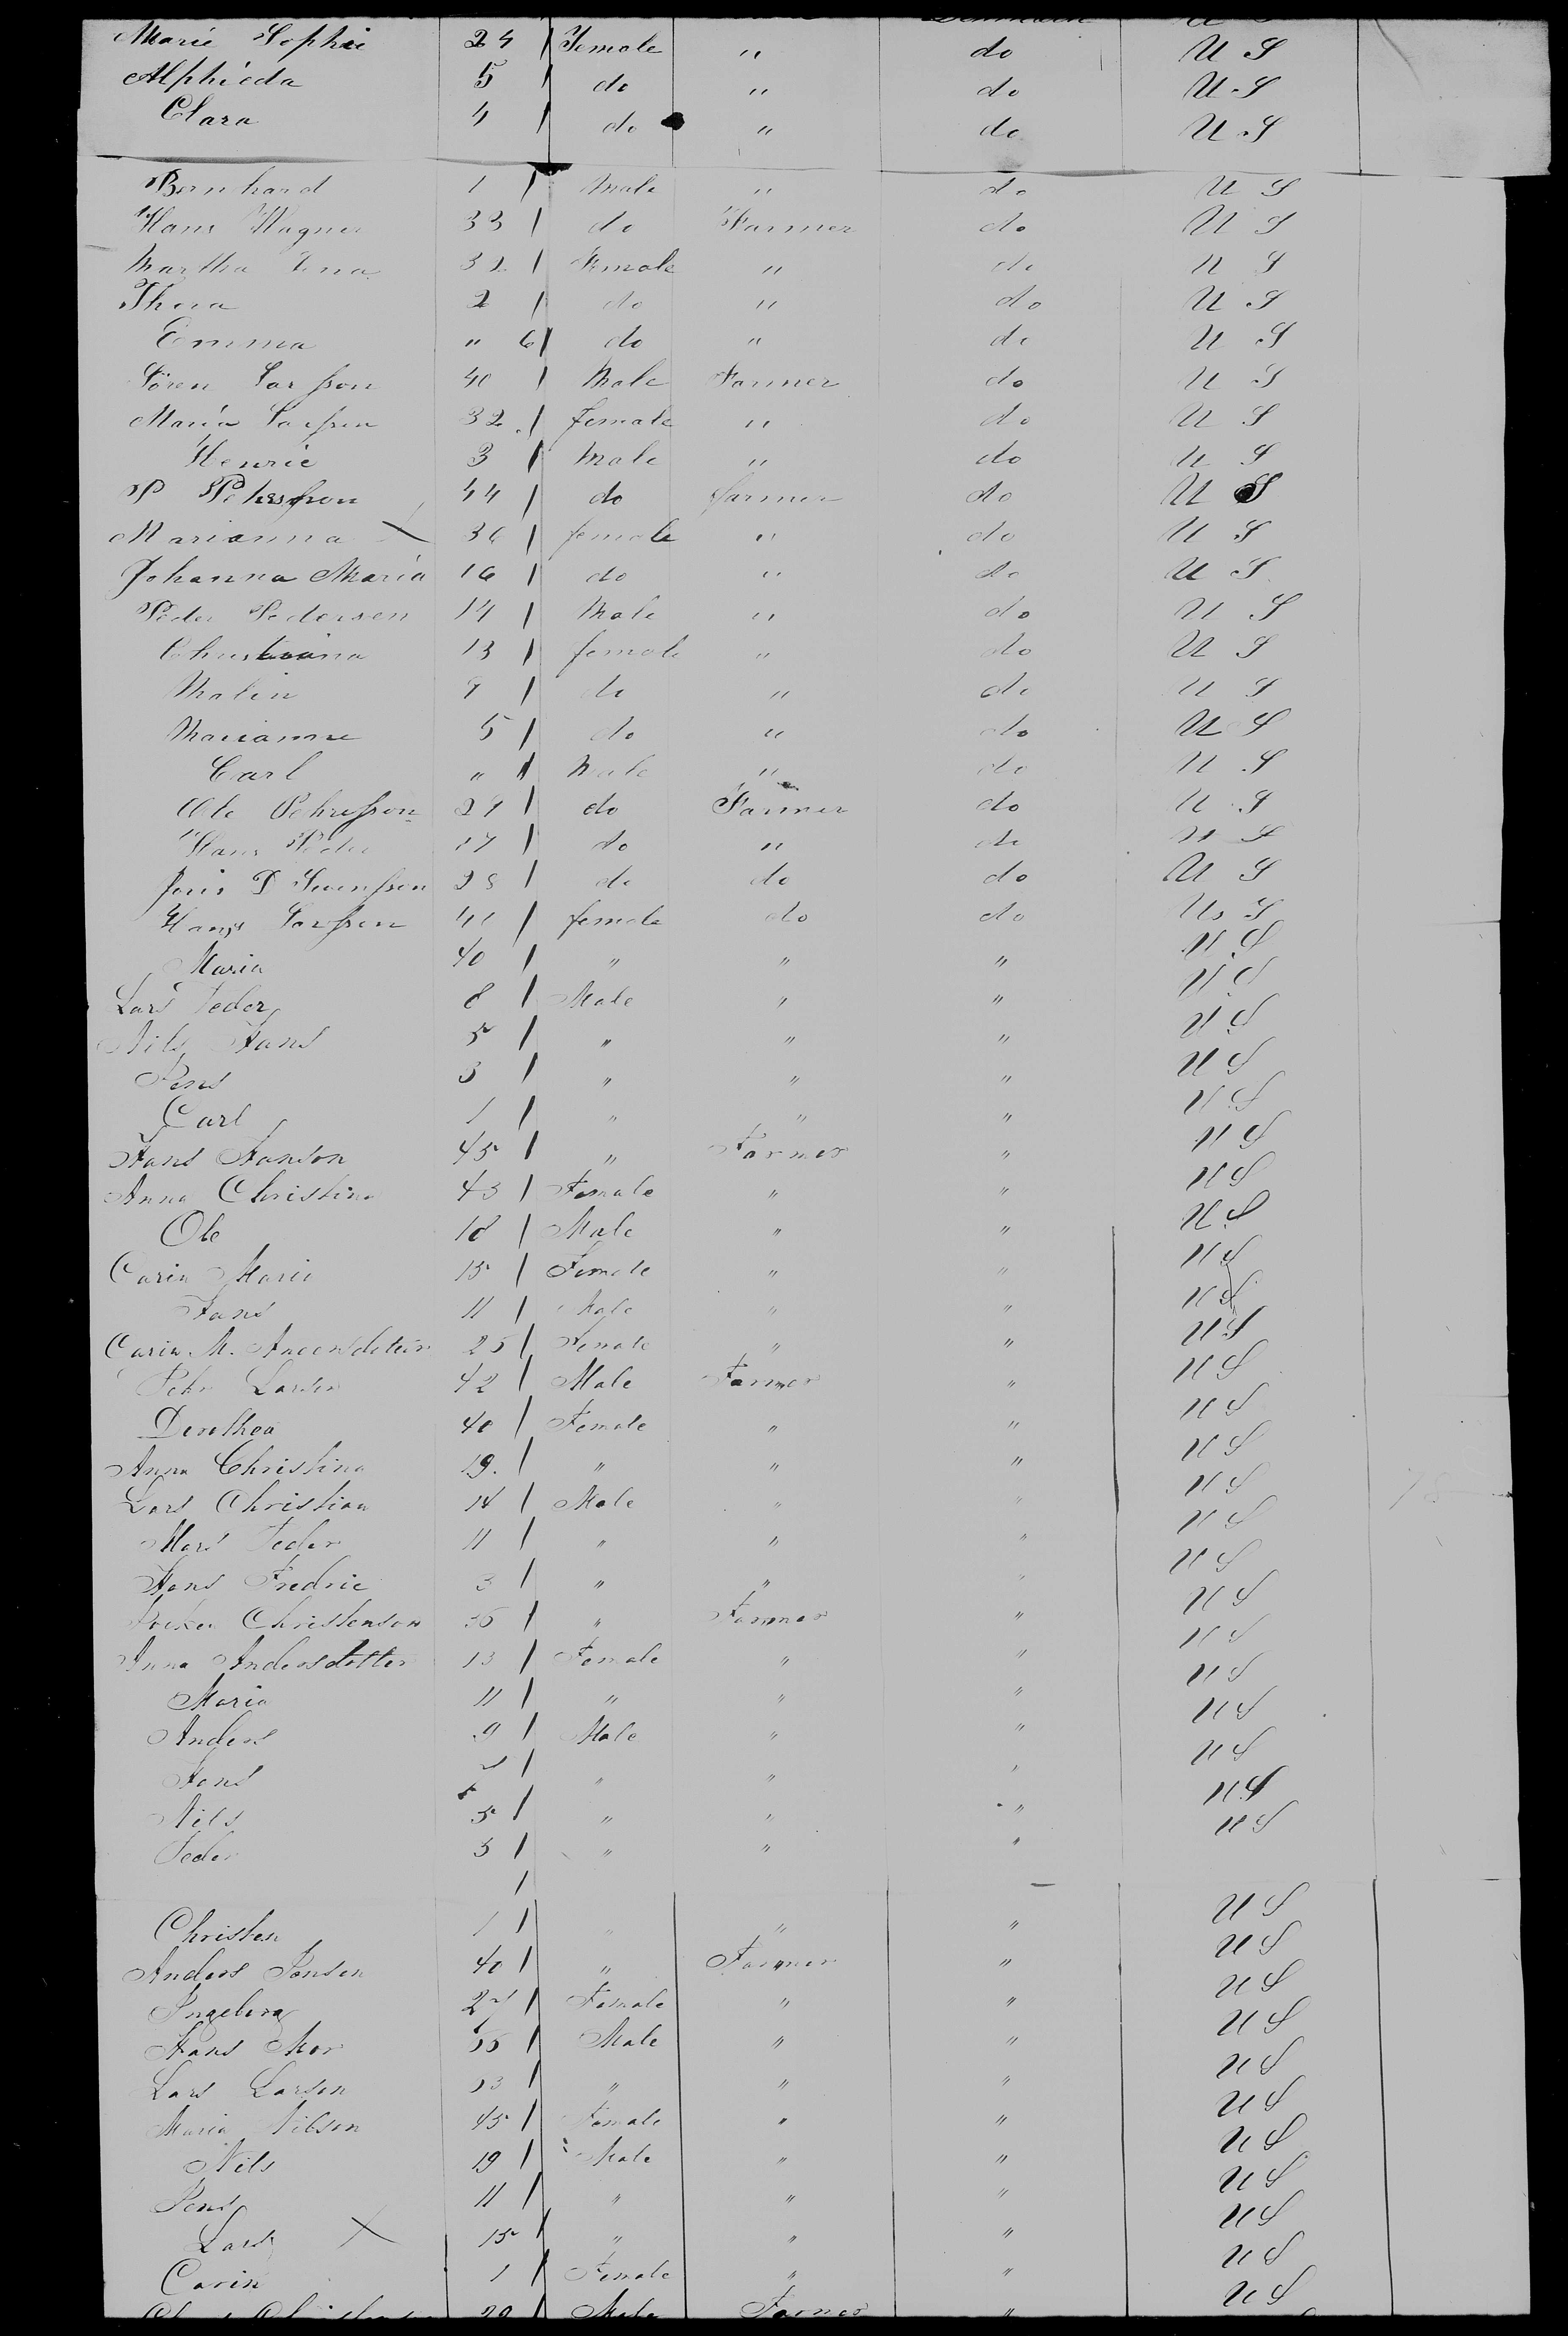 Marie Sophie 24 / Female " do U S
Alphieda 5 / do " do U S
Clara 4 / do " do U S
Bernhard 1 / Male " do U S
Hans Wagner 33 / do Farmer do U S
Martha Lena 32 / Female " do U S
Thora 2 / do " do U S
Emma " 6/ do " do U S
Sören Larsson 40 / Male Farmer do U S
Maria Larsson 32 / female " do U S
Henric 3 / Male " do U S
P Pehrsson 44 / do farmer do U S
Marianna X 36 / female " do U S
Johanna Maria 16 / do " do U S
Peder Pedersen 14 / Male " do U S
Christiana 13 / female " do U S
Malin 9 / do " do U S
Marianne 5 / do " do U S
Carl " / Male " do U S
Ole Pehrsson 29 / do Farmer do U S
Hans Peder 17 / do " do U S
Jens P Svensson 28 / do do do U S
Hans Larsson 41 / female do do U S
Maria 40 / " " " U S
Lars Peder 8 / Male " " U S
Nils Hans 5 / " " " U S
Jens 3 / " " " U S
Carl 1 / " " " U S
Hans Hanson 45 / " Farmer " U S
Anna Christina 43 / Female " " U S
Ole 18 / Male " " U S
Carin Maria 15 / Female " " U S
Hans 11 / Male " " U S
Carin M. 25 / Female " " U S
Pehr Larsen 42 / Male Farmer " U S
Dorothea 40 / Female " " U S
Anna Christina 19. / " " " U S
Lars Christian 14 / Male " " U S
Mars Peder 11 / " " " U S
Hans Fredric 3 / " " " U S
Christenson 36 / " Farmer " U S
Anna Andersdotter 13 / Female " " U S
Maria 11 / " " " U S
Anders 9 / Male " " U S
Hans / " " " U S
Nils 5 / " " " U S
Peder 3 / " " " U S
/
Christen 1 / " " " U S
Anders Jensen 40 / " Farmer " U S
Ingeborg 27 / Female " " U S
Hans Mor 55 / Male " " U S
Lars Larson 53 / " " " U S
Maria Nilson 45 / Female " " U S
Nils 19 / Male " " U S
Jens 11 / " " " U S
Lars X 15 / " " " U S
Carin 1 / Female " " U S
29 / Male Farmer " U S